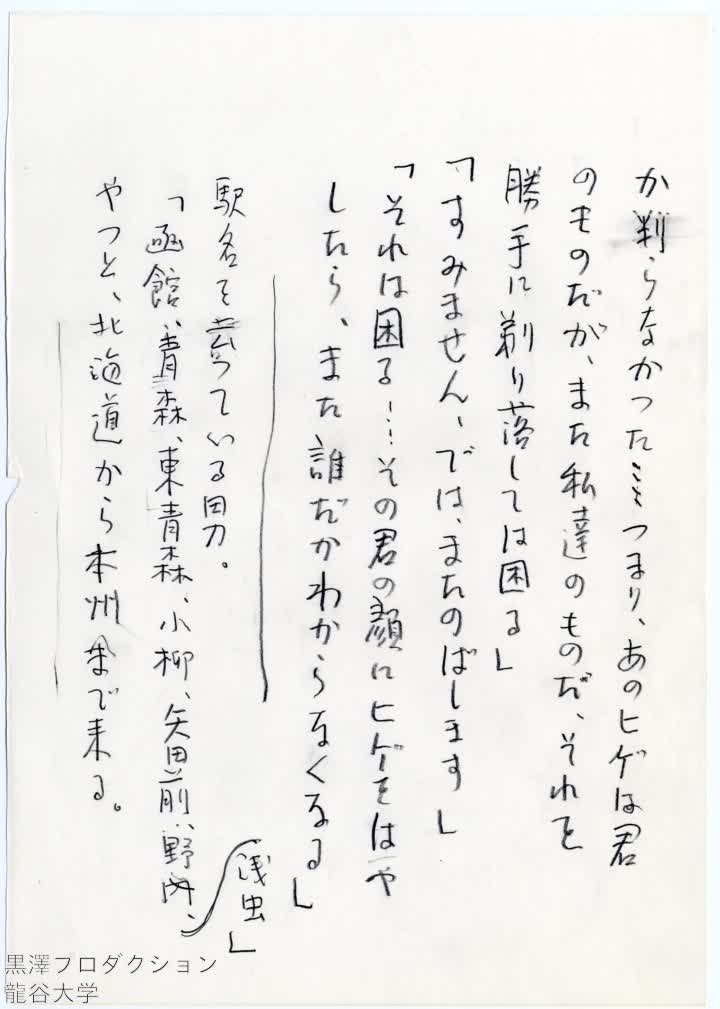 か判らなかった……つまり、あのヒゲは君
のものだが、また私達のものだ、それを
勝手に剃り落しては困る」
「すみません、では、またのばします」
「それは困る…その君の顔にヒゲをはや
したら、また誰だかわからなくなる」
駅名を言っている男。
「函館、青森、東青森、小柳、矢田前、野内、
浅虫」
やっと、北海道から本州まで来る。
黒澤プロダクション
龍谷大学